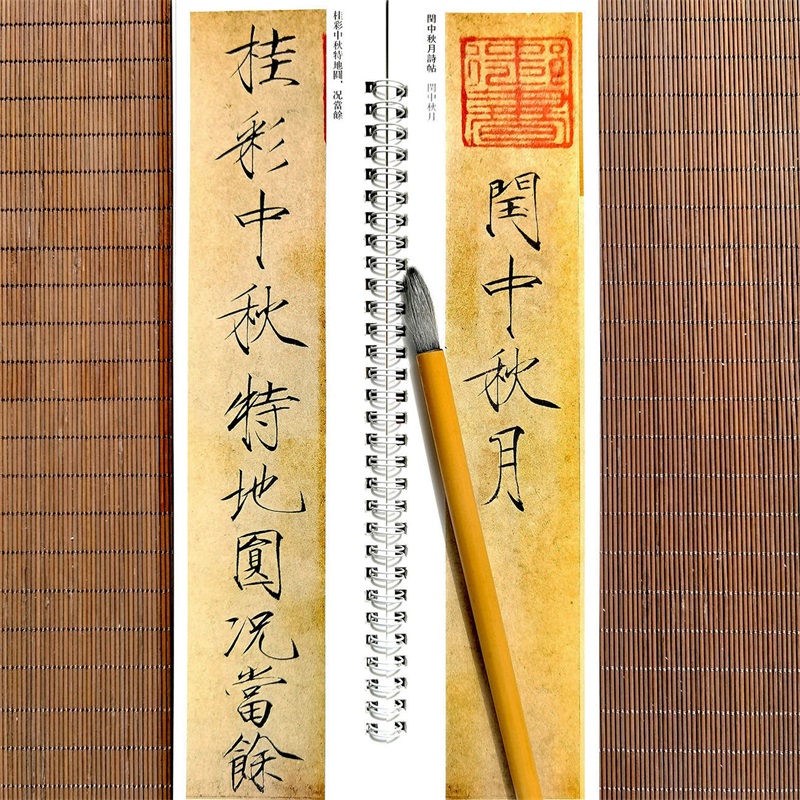 御書
閏中秋月
閏中秋月詩帖 閏中秋月
桂彩中秋特地圓、况當餘
桂彩中秋特地圓况當餘